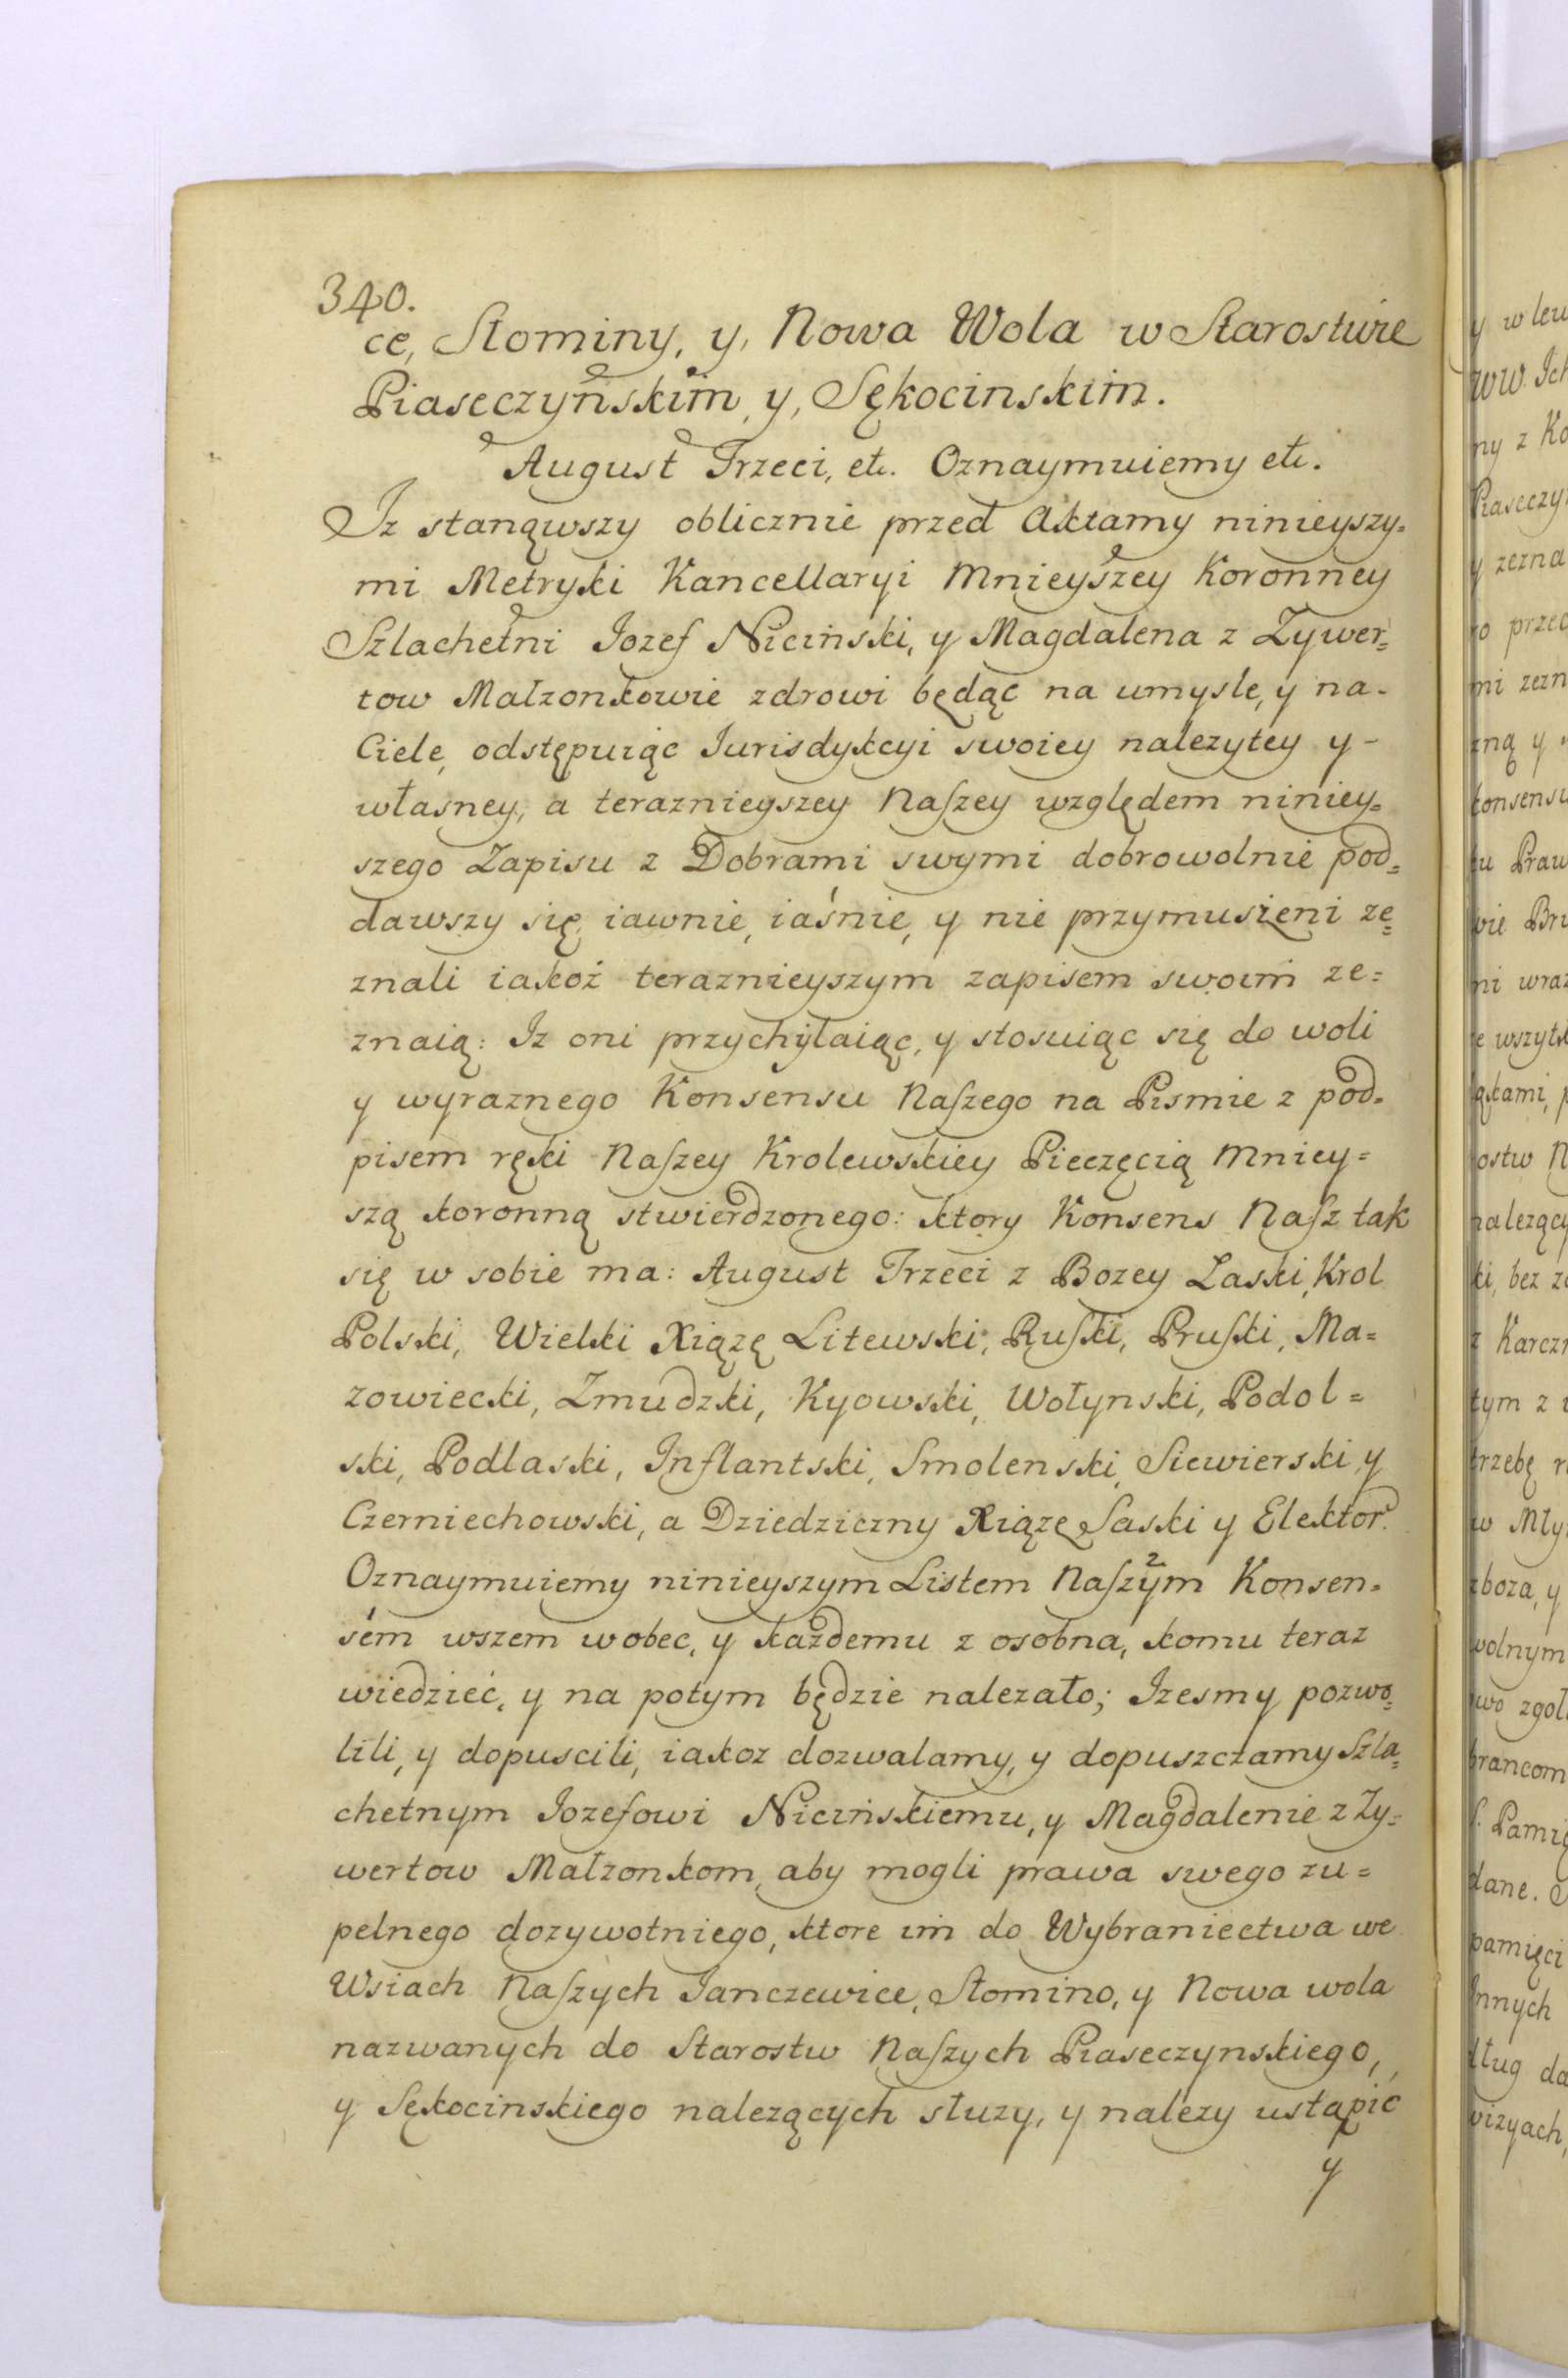 340.
ce, Słominy, y, Nowa Wola w Starostwie
Piaseczyńskim, y, Sękocinskim.
August Trzeci, etc. Oznaymuiemy etc.
Iz stanąwszy oblicznie przed Aktamy ninieyszy=
mi Metryki Kancellaryi Mnieyszey Koronney
Szlachetni Iozef Niciński, y Magdalena z Zywer=
tow Małzonkowie zdrowi będąc na umysle, y na-
Ciele, odstępuiąc Iurisdykcyi swoiey nalezytey y-
własney, a teraznieyszey Naszey względem niniey=
szego Zapisu z Dobrami swymi dobrowolnie pod=
dawszy się, iawnie, iaśnie, y nie przymuszeni ze=
znali iakoż teraznieyszym zapisem swoim ze=
znaią: Iz oni przychylaiąc, y stosuiąc się do woli
y wyraznego Konsensu Naszego na Pismie z pod=
pisem ręki Naszey Krolewskiey Pieczęcią Mniey=
szą koronną stwierdzonego: ktory Konsens Nasz tak
się w sobie ma: August Trzeci z Bozey Łaski, Krol
Polski, Wielki Xiązę Litewski, Ruski, Pruski, Ma=
zowiecki, Zmudzki, Kyowski, Wołynski, Podol=
ski, Podlaski, Inflantski, Smolenski, Siewierski, y
Czerniechowski, a Dziedziczny Xiązę Saski y Elektor.
Oznaymuiemy ninieyszym Listem Naszym Konsen=
sem wszem wobec, y każdemu z osobna, komu teraz
wiedzieć, y na potym będzie nalezało; Izesmy pozwo=
lili, y dopuscili, iakoz dozwalamy, y dopuszczamy Szla=
chetnym Iozefowi Nicińskiemu, y Magdalenie z Zy=
wertow Małzonkom, aby mogli prawa swego zu=
pelnego dozywotniego, ktore im do Wybraniectwa we
Wsiach Naszych Ianczewice, Słomino, y Nowa wola
nazwanych do Starostw Naszych Piaseczynskiego,
y Sękocinskiego nalezących słuzy, y nalezy ustąpić
y